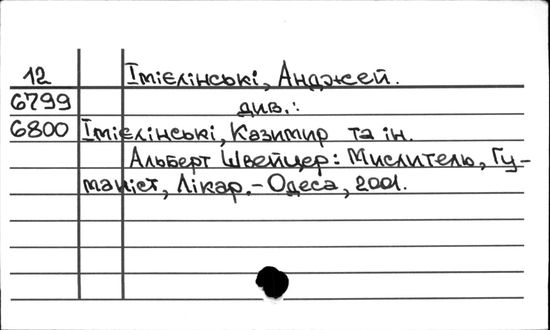 12 Імієлінські, Анджей.
6799 див.:
6800 Імієлінські, Казимир та ін.
Альберт Швейцер: Мислитель, Гу-
маніст, Лікар.- Одеса, 2001.